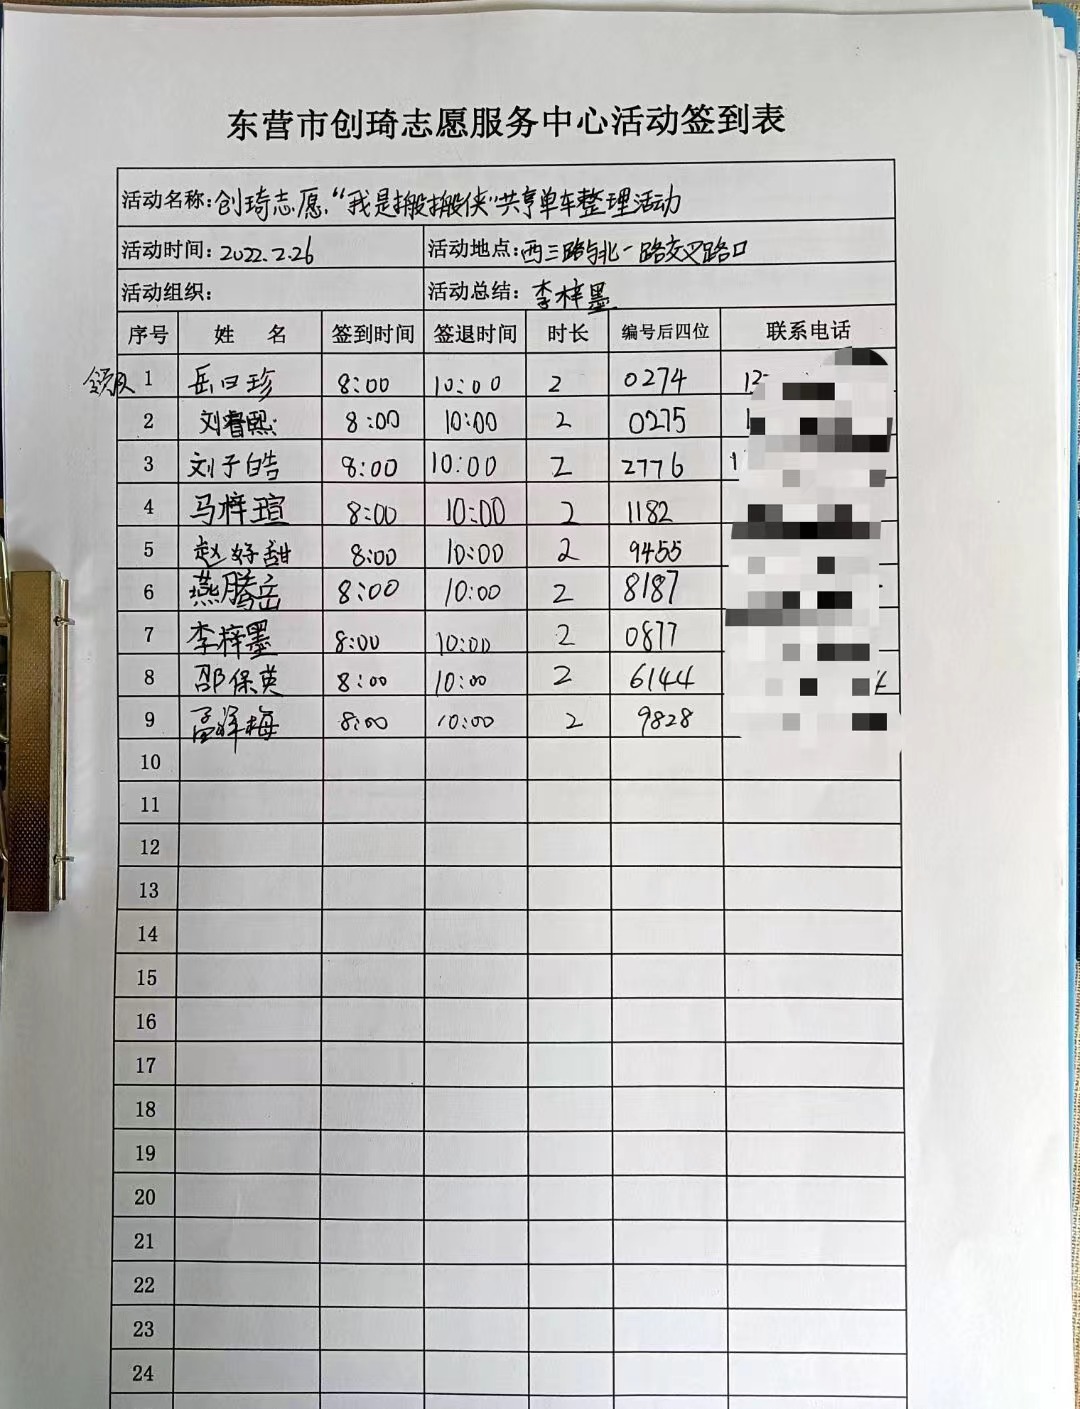 东营市创琦志愿服务中心活动签到表
活动名称:创琦志愿“我是搬搬侠”共享单车整理活动
活动时间: 2022.2.26 活动地点:西三路与北一路交叉路口
活动组织: 活动总结: 李梓墨
序号 姓 名 签到时间 签退时间 时长 编号后四位 联系电话
领队 1 岳曰珍 8:00 10:00 2 0274
2 刘睿熙 8:00 10:00 2 0275
3 刘子皓 8:00 10:00 2 2776
4 马梓瑄 8:00 10:00 2 1182
5 赵好甜 8:00 10:00 2 9455
6 燕腾岳 8:00 10:00 2 8187
7 李梓墨 8:00 10:00 2 0877
8 邵保英 8:00 10:00 2 6144
9 孟祥梅 8:00 10:00 2 9828
10
11
12
13
14
15
16
17
18
19
20
21
22
23
24